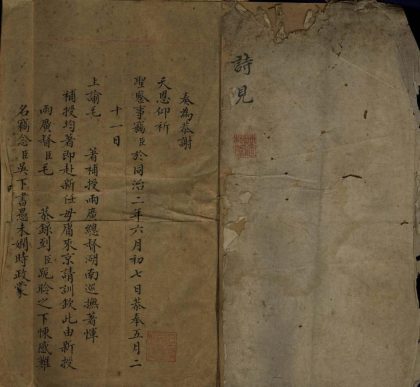 詩見
奏為恭謝
天恩仰祈
聖鑒事竊臣於同治二年六月初七日恭奉五月二
十一日
上諭毛 著補授兩廣總督湖南巡撫著惲
補授均著即赴新任毋庸來京請訓欽此由新授
兩廣督臣毛 恭錄到臣跪聆之下悚感難
名竊念臣吳下書愚未嫻時政蒙